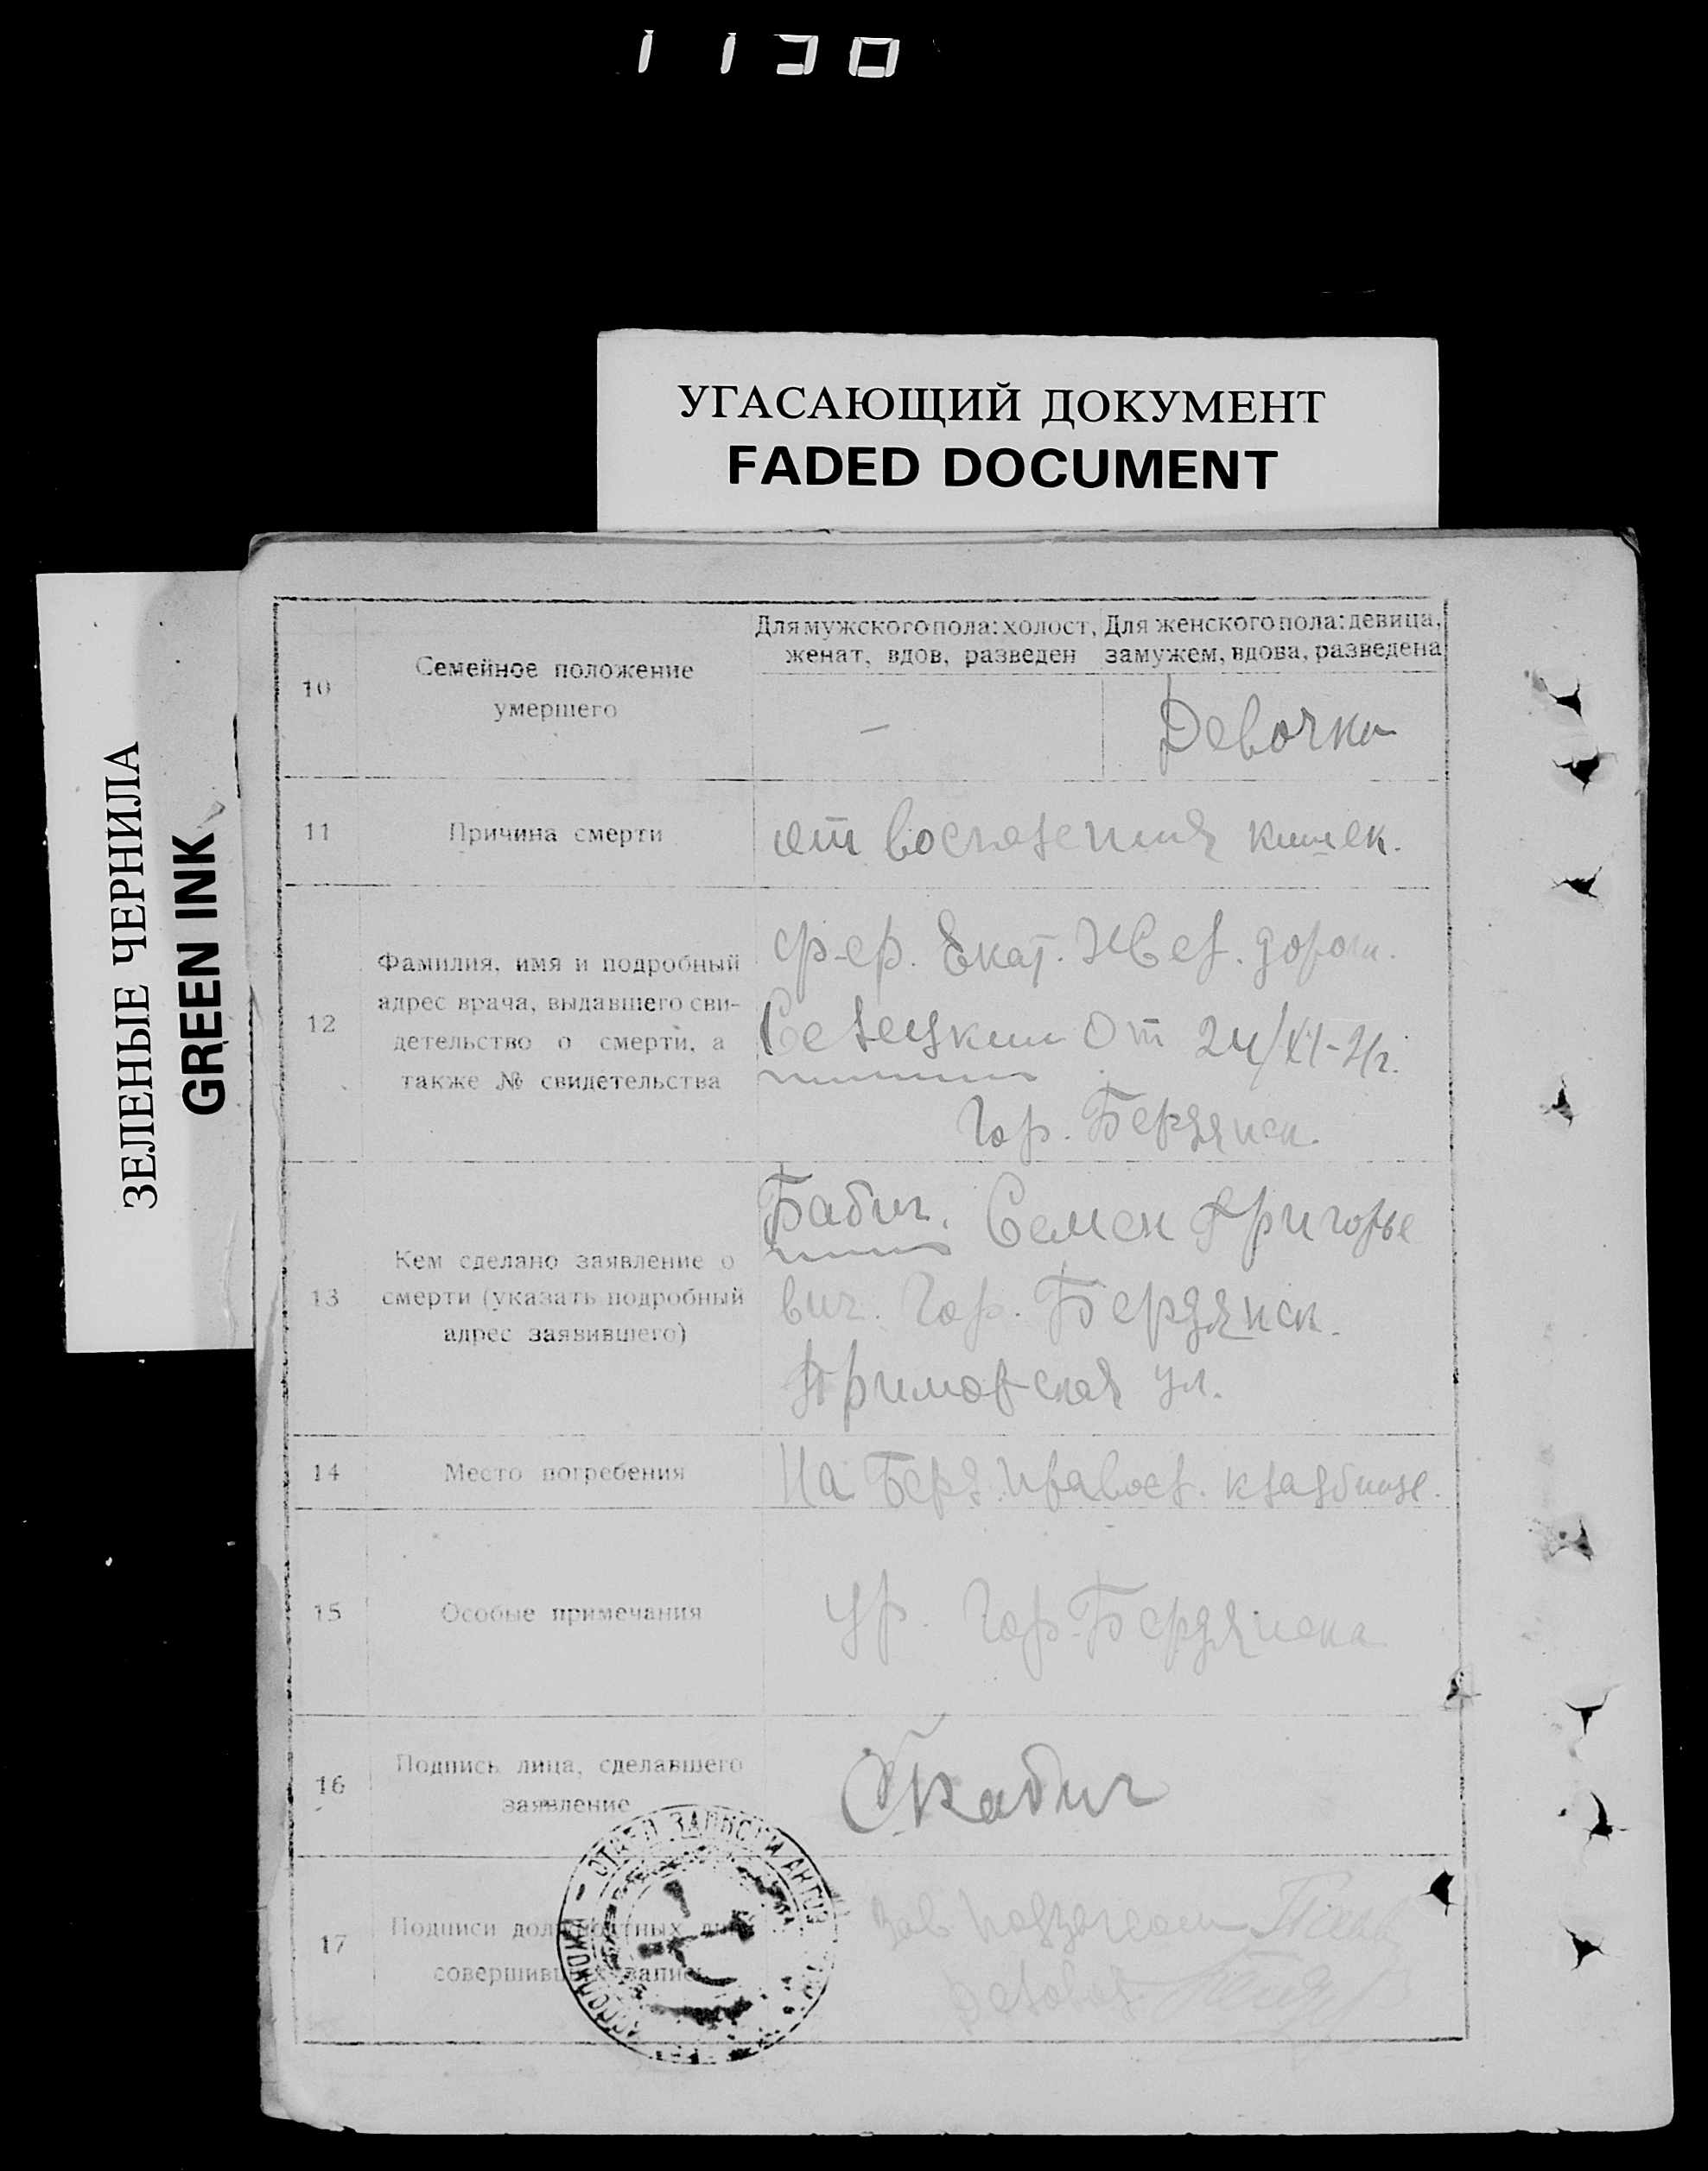 1130
УГАСАЮЩИЙ ДОКУМЕНТ
FADED DOCUMENT
ЗЕЛЕНЫЕ ЧЕРНИЛА
GREEN INK
10
Семейное положение
умершего
Для мужского пола: холост,
женат, вдов, разведен
Для женского пола: девица,
замужем, вдова, разведена
—
Девочка
11
Причина смерти
от воспаления кишек.
12
Фамилия, имя и подробный
адрес врача, выдавшего сви-
детельство о смерти, а
также № свидетельства
ф-ер. Екат. Жел. дороги.
От 24/XI-21г.
Гор. Бердянск.
13
Кем сделано заявление о
смерти (указать подробный
адрес заявившего)
Бабич. Семен Григорье
вич. Гор. Бердянск.
Приморская ул.
14
Место погребения
На Берд. Правосл. кладбище.
15
Особые примечания
ур. Гор. Бердянска
16
Подпись лица, сделавшего
заявление
Бабич
17
Подписи должностных лиц
совершивших запись
Зав
ОТДЕЛ ЗАПИСИ АКТОВ